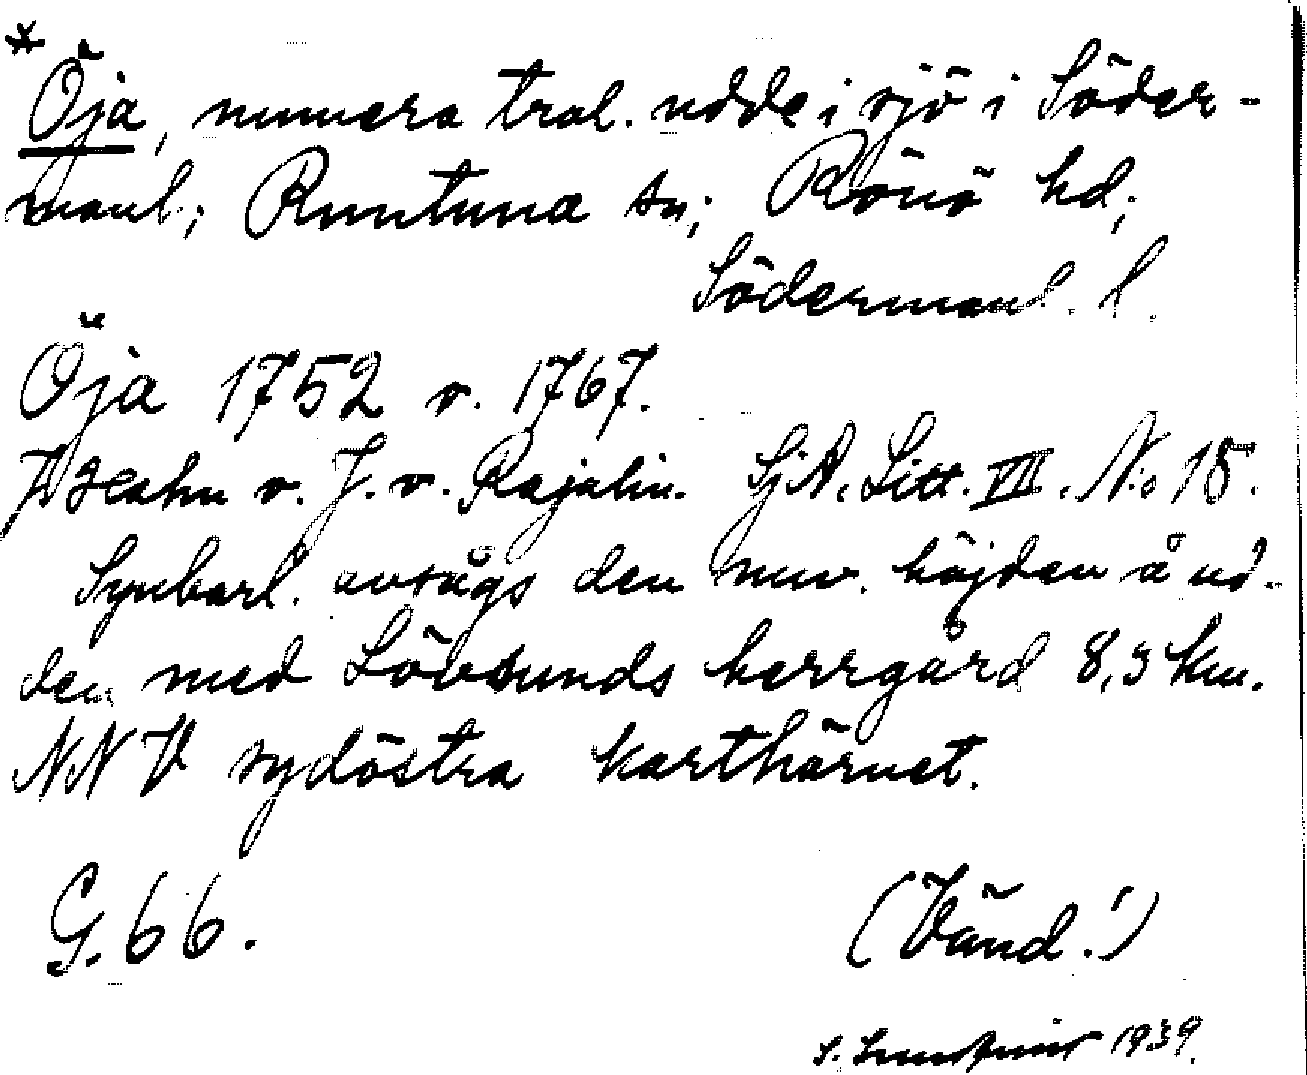 *
Öja, numera trol. udde i sjö i Söder-
manl.; Runtuna sn; Rönö hd;
Södermanl. l.
Öja 1752 o. 1767.
J. Hahn o. J. v. Rajalin. SjA. Litt. VII. No 15.
Synbarl. avsågs den nuv. höjden å ud-
den med Lövsunds herrgård 8,3 km.
NNV sydöstra karthörnet.
G. 66. (Vänd!)
S. 1939.